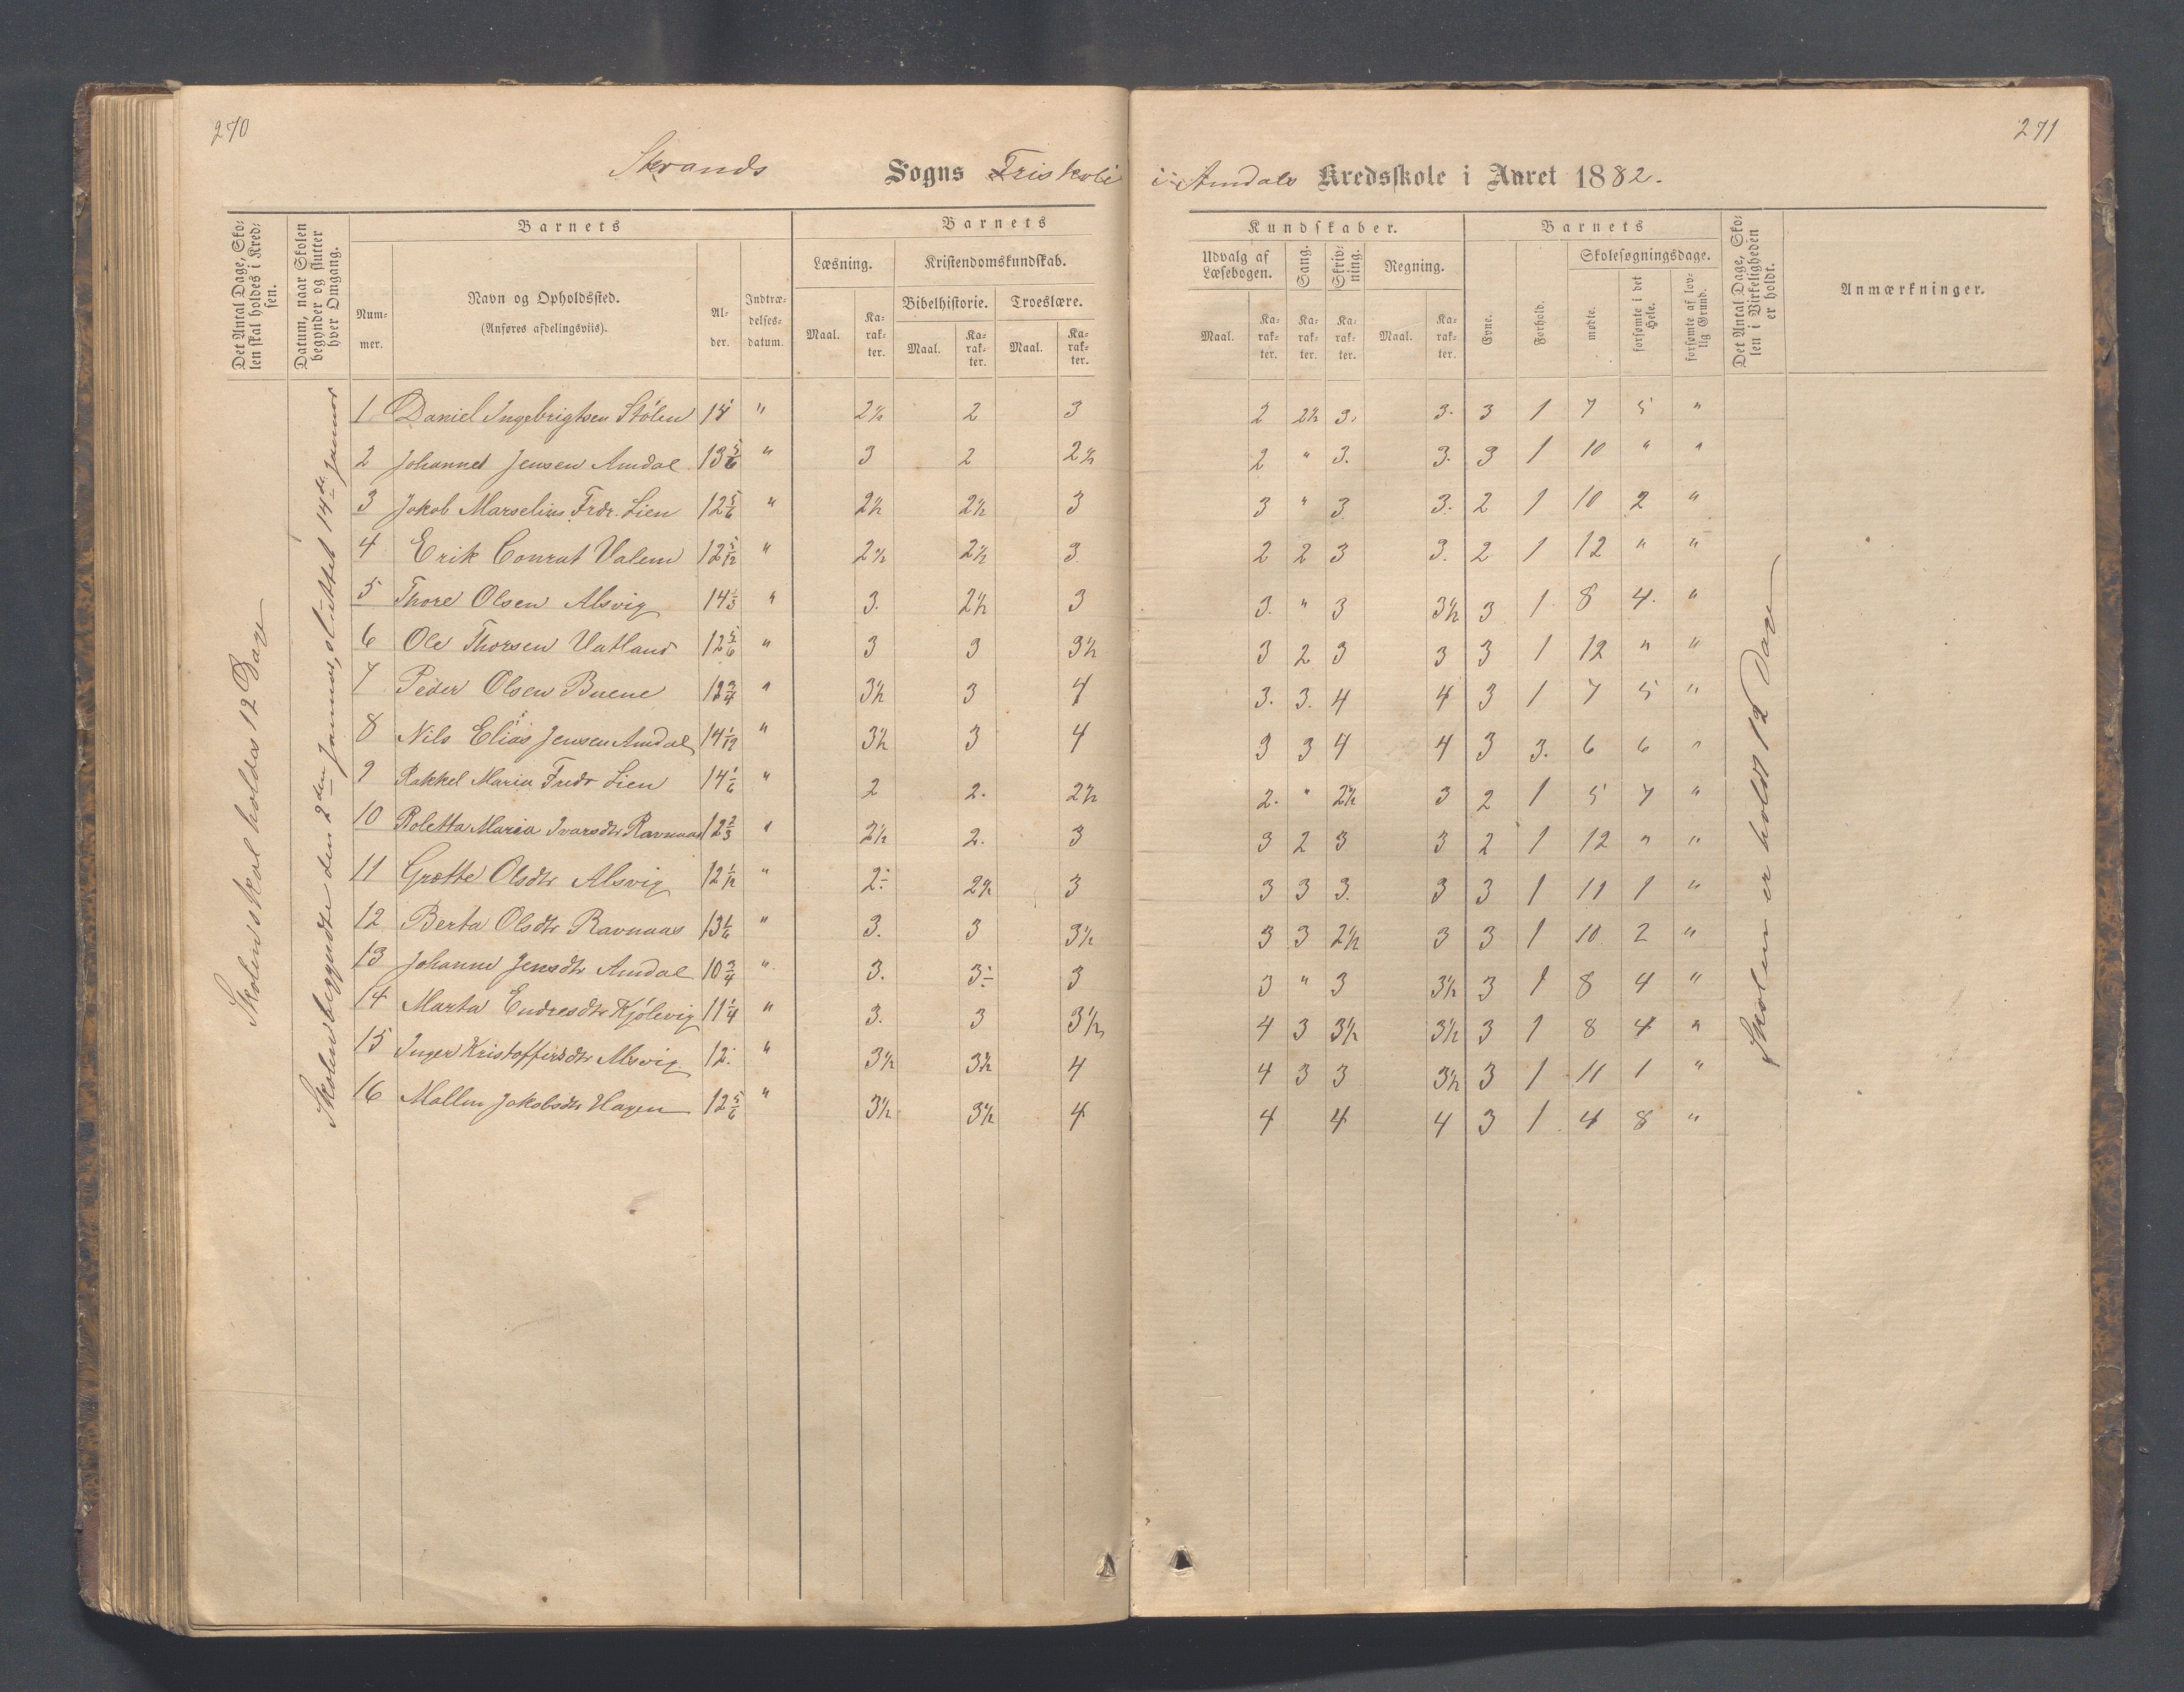 270
271
Strands Sogns Friskole i Amdals Kredsskole i Aaret 1882.
Det Antal Dage, Skolen skal holdes i Kredsen.
Datum, naar Skolen begynder og slutter hver Omgang.
Barnets
Nummer.
Navn og Opholdssted.
(Anføres afdelingsviis).
Alder.
Indtrædelsesdatum.
Barnets
Læsning.
Kristendomskundskab.
Bibelhistorie.
Troeslære.
Maal. Karakter. Maal. Karakter. Maal. Karakter.
Kundskaber.
Udvalg af Læsebogen.
Sang.
Skrivning.
Regning.
Maal. Karakter. Karakter. Karakter. Maal. Karakter.
Barnets
Evne.
Forhold.
Skolesøgningsdage.
mødte.
forsømte i det Hele.
forsømte af lovlig Grund.
Det Antal Dage, Skolen i Virkeligheden er holdt.
Anmærkninger.
Skolen skal holdes 12 Dage
Skolen begyndte den 2den Januar, sluttet 14de Januar
1 Daniel Ingebrigtsen Stölen 14 " 2½ 2 3 2 2½ 3. 3. 3 1 7 5 "
2 Johannes Jensen Amdal 13 5/6 " 3 2 2½ 2 " 3. 3. 3 1 10 " "
3 Jakob Marselius Frdr. Lien 12 5/6 " 2½ 2½ 3 3 " 3 3. 2 1 10 2 "
4 Erik Conrat Valem 12 5/12 " 2½ 2½ 3 2 2 3 3. 2 1 12 " "
5 Thore Olsen Alsvig 14 1/3 " 3. 2½ 3 3. " 3 3½ 3 1 8 4. "
6 Ole Thorsen Vatland 12 5/6 " 3 3 3½ 3 2 3 3 3 1 12 " "
7 Peder Olsen Buene 12 3/4 " 3½ 3 4 3. 3. 4 4 3 1 7 5 "
8 Nils Elias Jensen Amdal 14 1/12 " 3½ 3 4 3 3 4 4 3 3. 6 6 "
9 Rakkel Maria Fredr Lien 14 1/6 " 2 2. 2½ 2. " 2½ 3 2 1 5 7 "
10 Roletta Maria Ivarsdtr Ravnaas 12 2/3 " 2½ 2. 3 3 2 3 3 2 1 12 " "
11 Grette Olsdtr Alsvig 12 1/12 " 2÷ 2½ 3 3 3 3. 3 3 1 11 1 "
12 Berta Olsdtr Ravnaas 13 1/6 " 3. 3 3½ 3 3 2½ 3 3 1 10 2 "
13 Johanne Jensdtr Amdal 10 3/4 " 3. 3÷ 3 3 " 3 3½ 3 1 8 4 "
14 Marta Endresdtr Kjölevig 11 1/4 " 3. 3 3½ 4 3 3½ 3½ 3 1 8 4 "
15 Inger Kristoffersdtr Alsvig 12. " 3½ 3½ 4 4 3 3 3½ 3 1 11 1 "
16 Mallen Jakobsdtr Hagen 12 5/6 " 3½ 3½ 4 4 4 4 3 1 4 8 "
Skolen er holdt 12 Dage